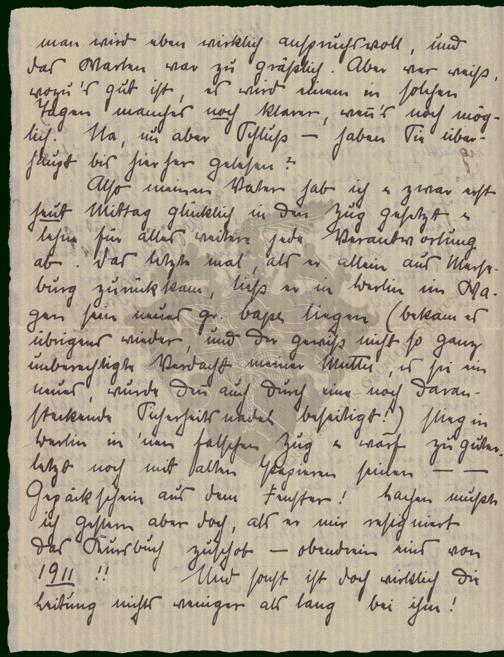 man wird eben wirklich anspruchsvoll, und
das Warten war zu gräßlich. Aber wer weiß,
wozu's gut ist, es wird einem in solchen
Tagen manches noch klarer, wenn's noch mög-
lich. Na, nu aber Schluß – haben Sie über-
haupt bis hierher gelesen?
Also meinen Vater hab ich u zwar erst
heut Mittag glücklich in den Zug gesetzt u
lehne für alles weitere jede Verantwortung
ab. Das letzte mal, als er allein aus Merse-
burg zurückkam, ließ er in Berlin im Wa-
gen sein neues gr. liegen (bekam es
übrigens wieder, und der gewiß nicht so ganz
unberechtigte Verdacht meiner Mutter, es sei ein
neues, wurde dann auch durch eine noch daran-
steckende Sicherheitsnadel beseitigt!) stieg in
Berlin in 'nen falschen Zug u warf zu guter-
letzt noch mit alten Papieren seinen – –
Gepäckschein aus dem Fenster! Lachen mußte
ich gestern aber doch, als er mir resigniert
das Kursbuch zuschob – obendrein eins von
1911 !! Und sonst ist doch wirklich die
Leitung nichts weniger als lang bei ihm!